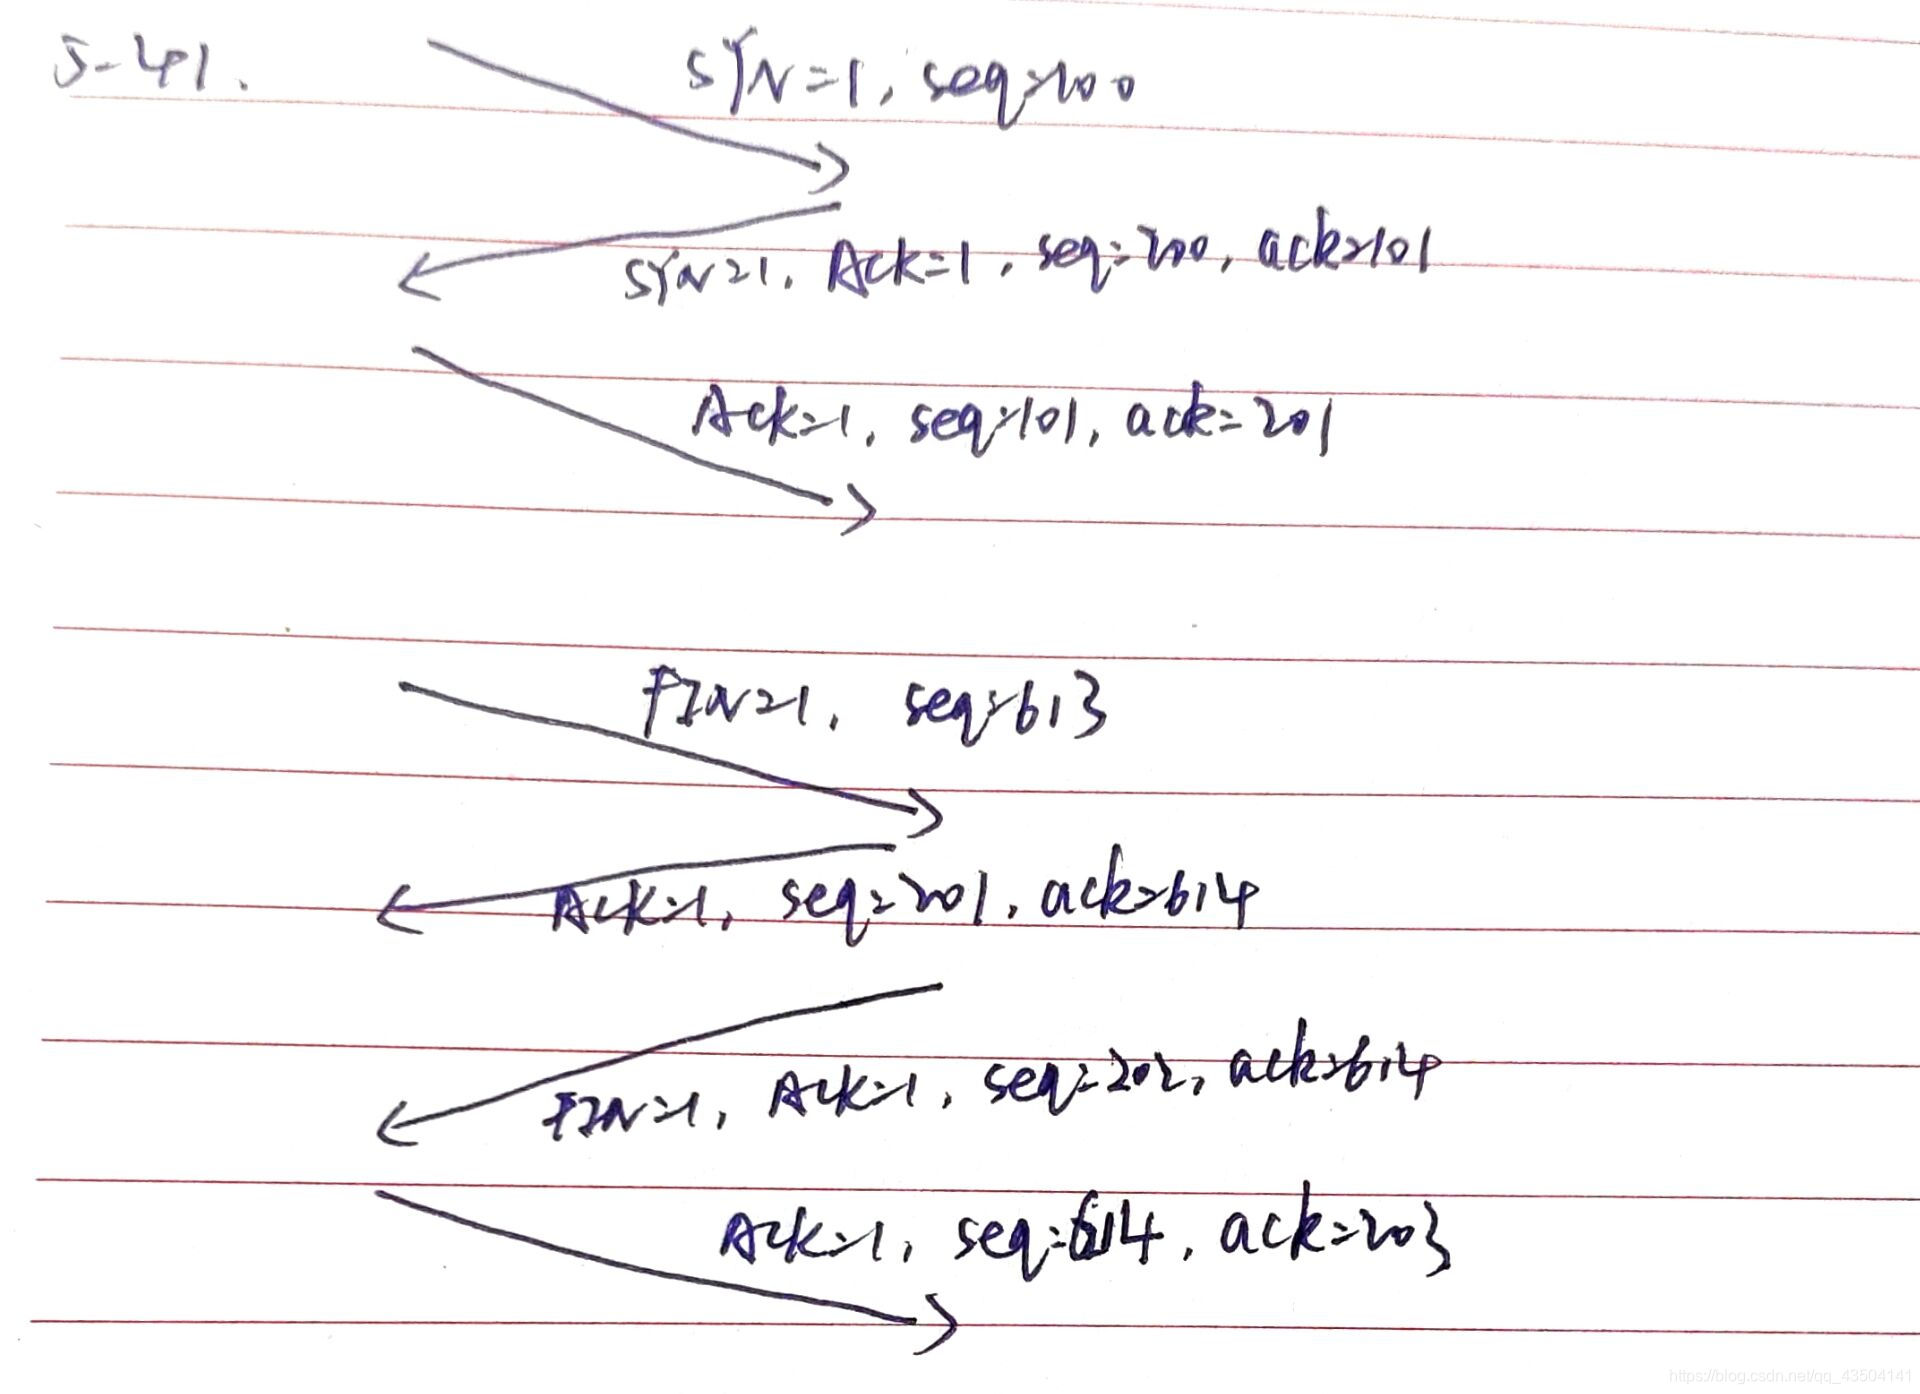 5-41.
SYN=1, seq=100
SYN=1, Ack=1, seq=200, ack=101
Ack=1, seq=101, ack=201
FIN=1, seq=613
Ack=1, seq=201, ack=614
FIN=1, Ack=1, seq=202, ack=614
Ack=1, seq=614, ack=203
https://blog.csdn.net/qq_43504141